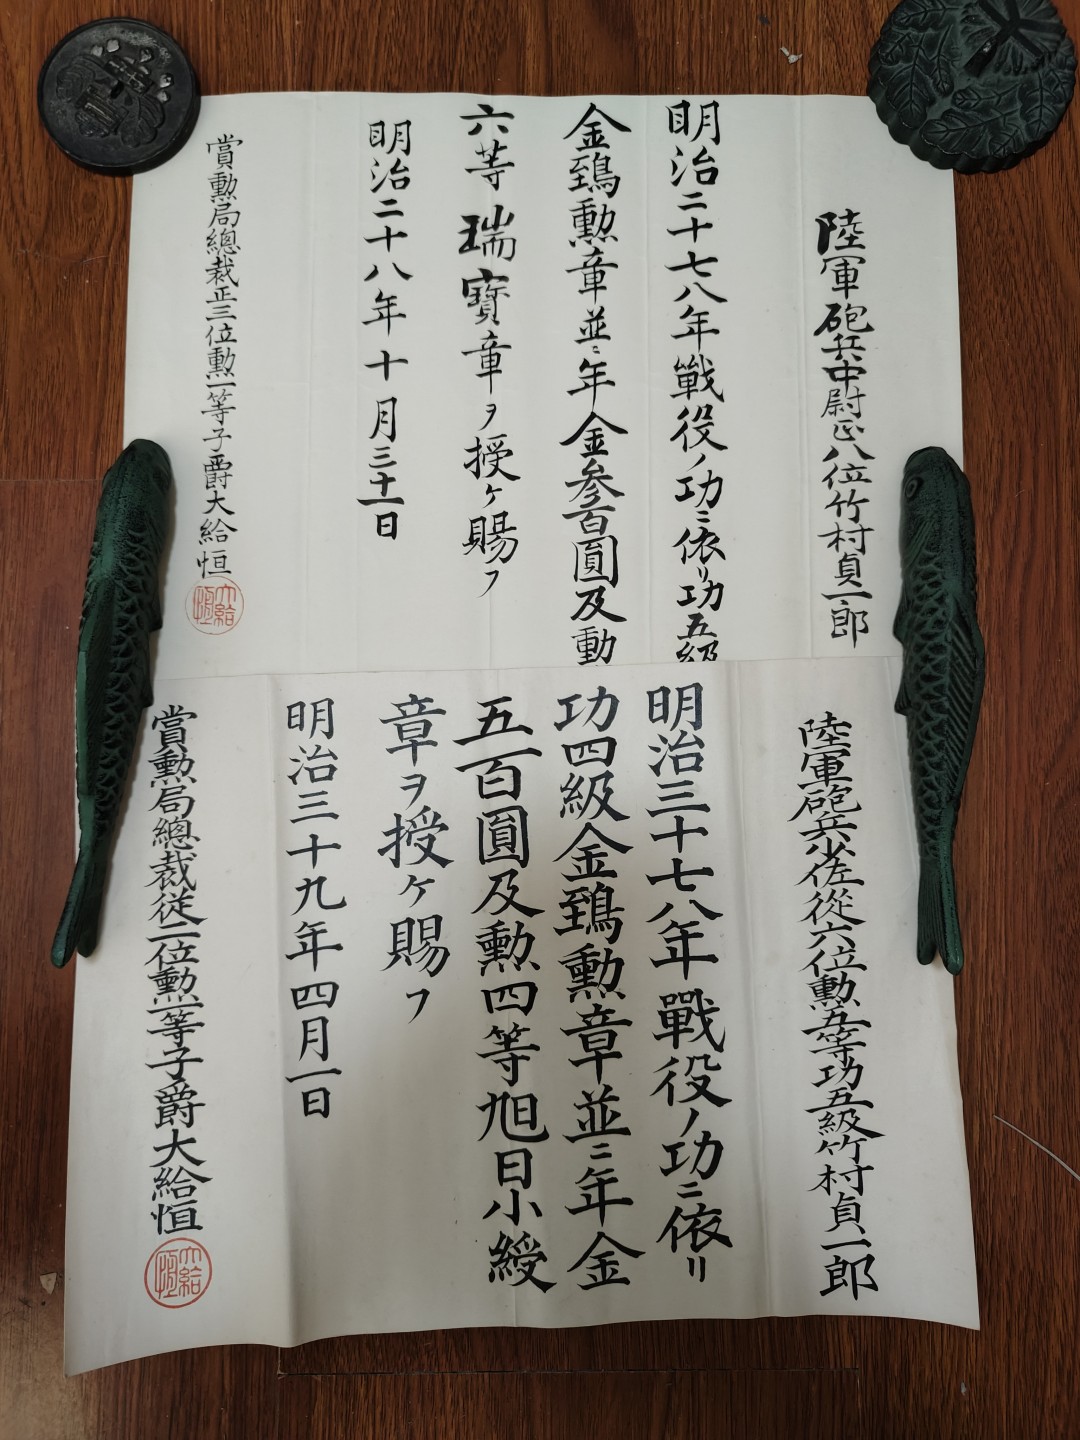 陸軍砲兵中尉正八位竹村貞一郎
明治二十七八年戰役ノ功ニ依リ功五級
金鵄勲章並ニ年金参百圓及勲
六等瑞寶章ヲ授ケ賜フ
明治二十八年十月三十一日
賞勲局總裁正三位勲一等子爵大給恒
大給恒
陸軍砲兵少佐從六位勲五等功五級竹村貞一郎
明治三十七八年戰役ノ功ニ依リ
功四級金鵄勲章並ニ年金
五百圓及勲四等旭日小綬
章ヲ授ケ賜フ
明治三十九年四月一日
賞勲局總裁従二位勲一等子爵大給恒
大給恒